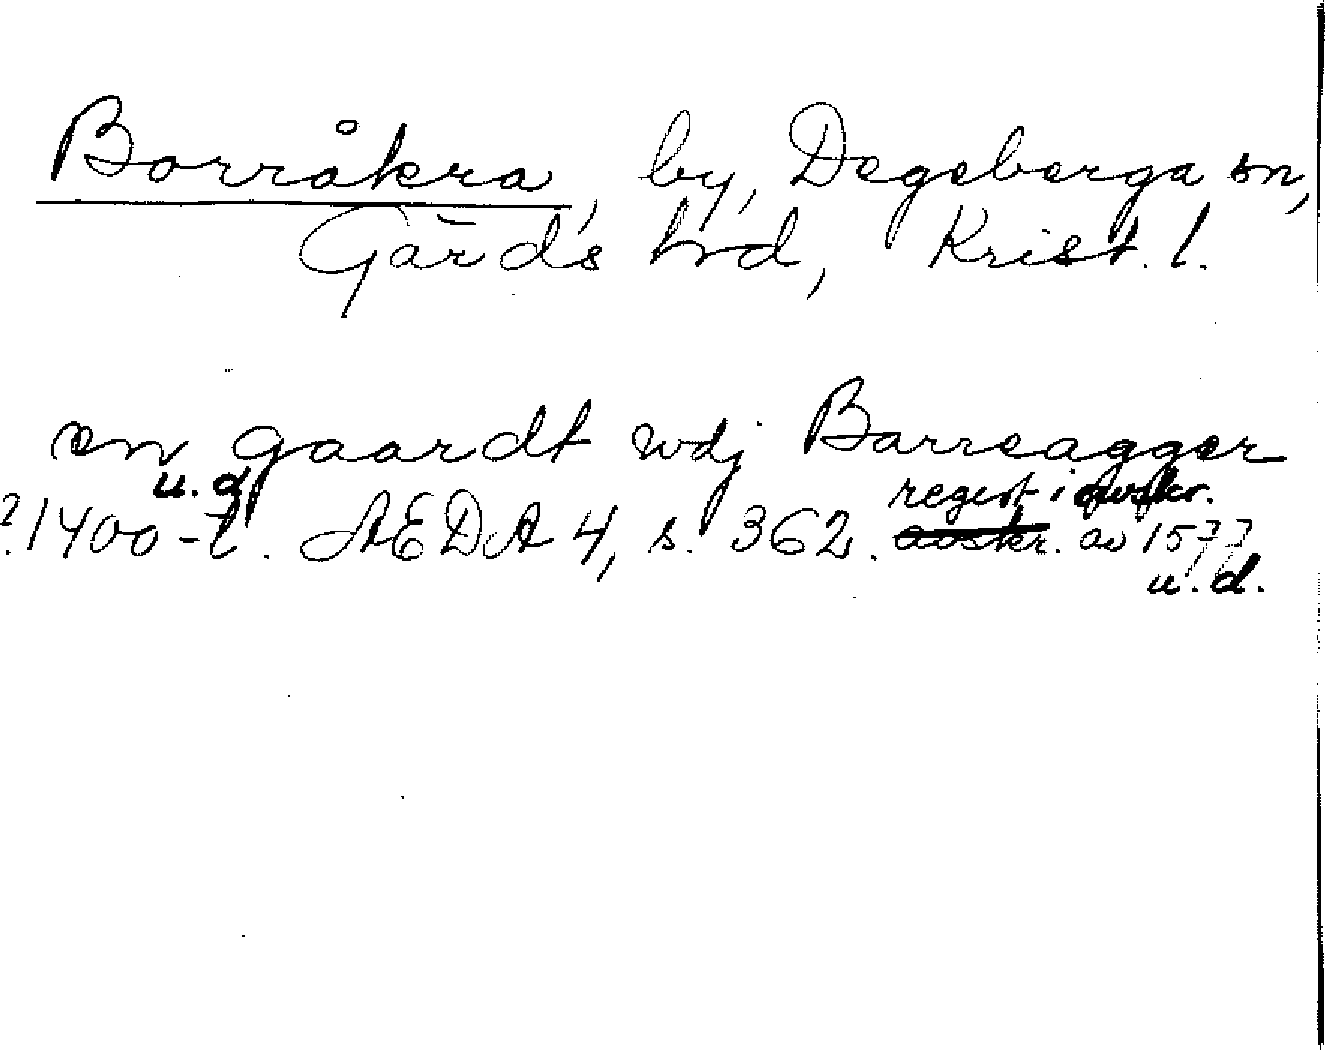 Borråkra, by, Degeberga sn,
Gärds hrd, Krist. l.
en gaardt wdj Barreagger
u. d.
?.1400-t. AEDA 4, s. 362. regest i avskr. av 1577
u. d.